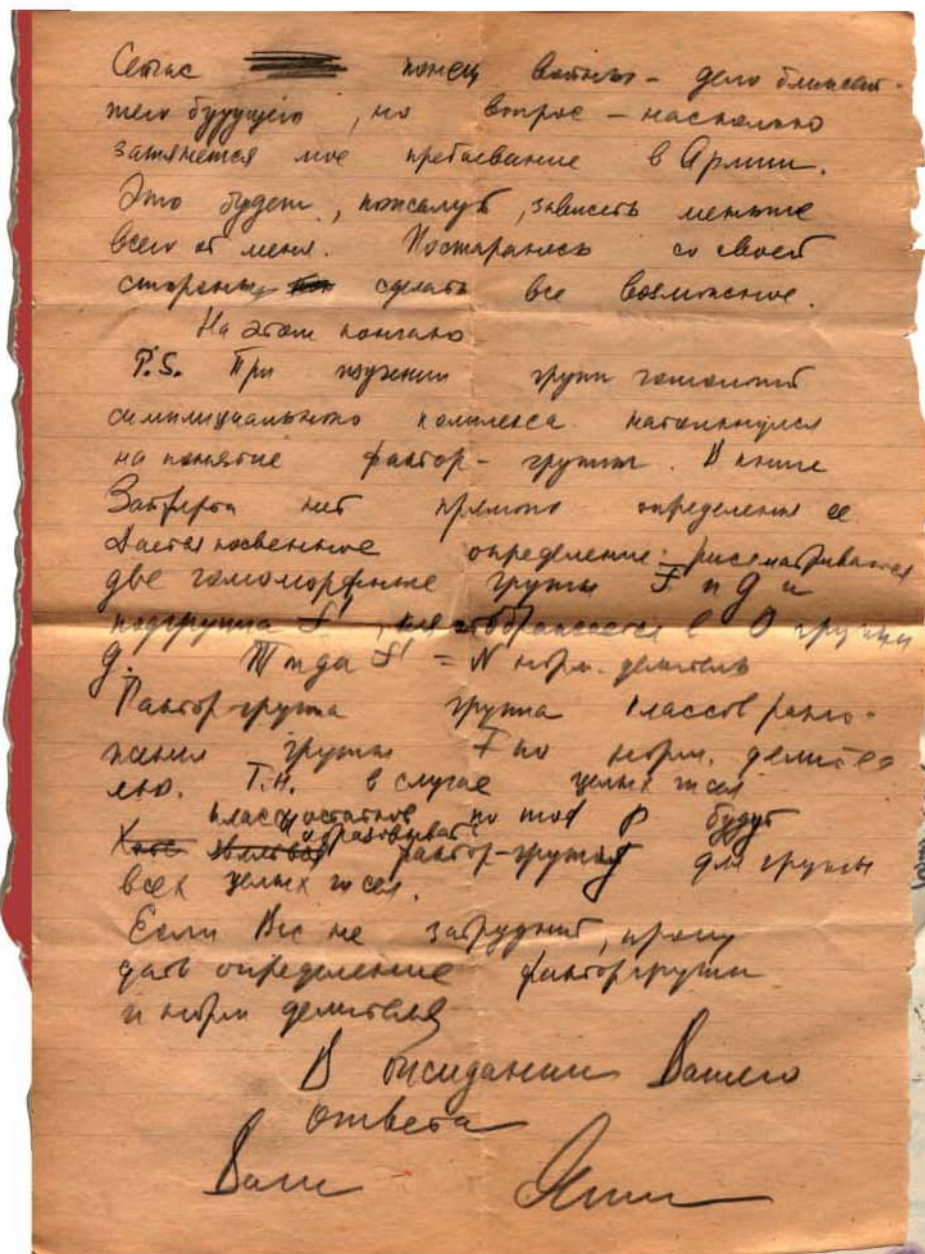 Сейчас конец войны - дело ближай-
шего будущего, но вопрос - насколько
затянется мое пребывание в Армии.
Это будет, пожалуй, зависеть меньше
всего от меня. Постараюсь со своей
стороны сделать все возможное.
На этом кончаю
P.S. При изучении групп гомологий
симплициального комплекса натолкнулся
на понятие фактор-группы. В книге
Зайферта нет прямого определения ее
Дается косвенное определение: рассматриваются
две гомоморфные группы F и G и
подгруппа F', отображается в O группы
G. Тогда F' = N норм. делитель
Фактор-группа группа классов разло-
жения группы F по норм. делите
лю. Т.н. в случае целых чисел
классы остатков по mod p будут
образовывать фактор-группу для группы
всех целых чисел.
Если Вас не затруднит, прошу
дать определение факторгруппы
и норм делителя
В ожидании Вашего
ответа
Ваш